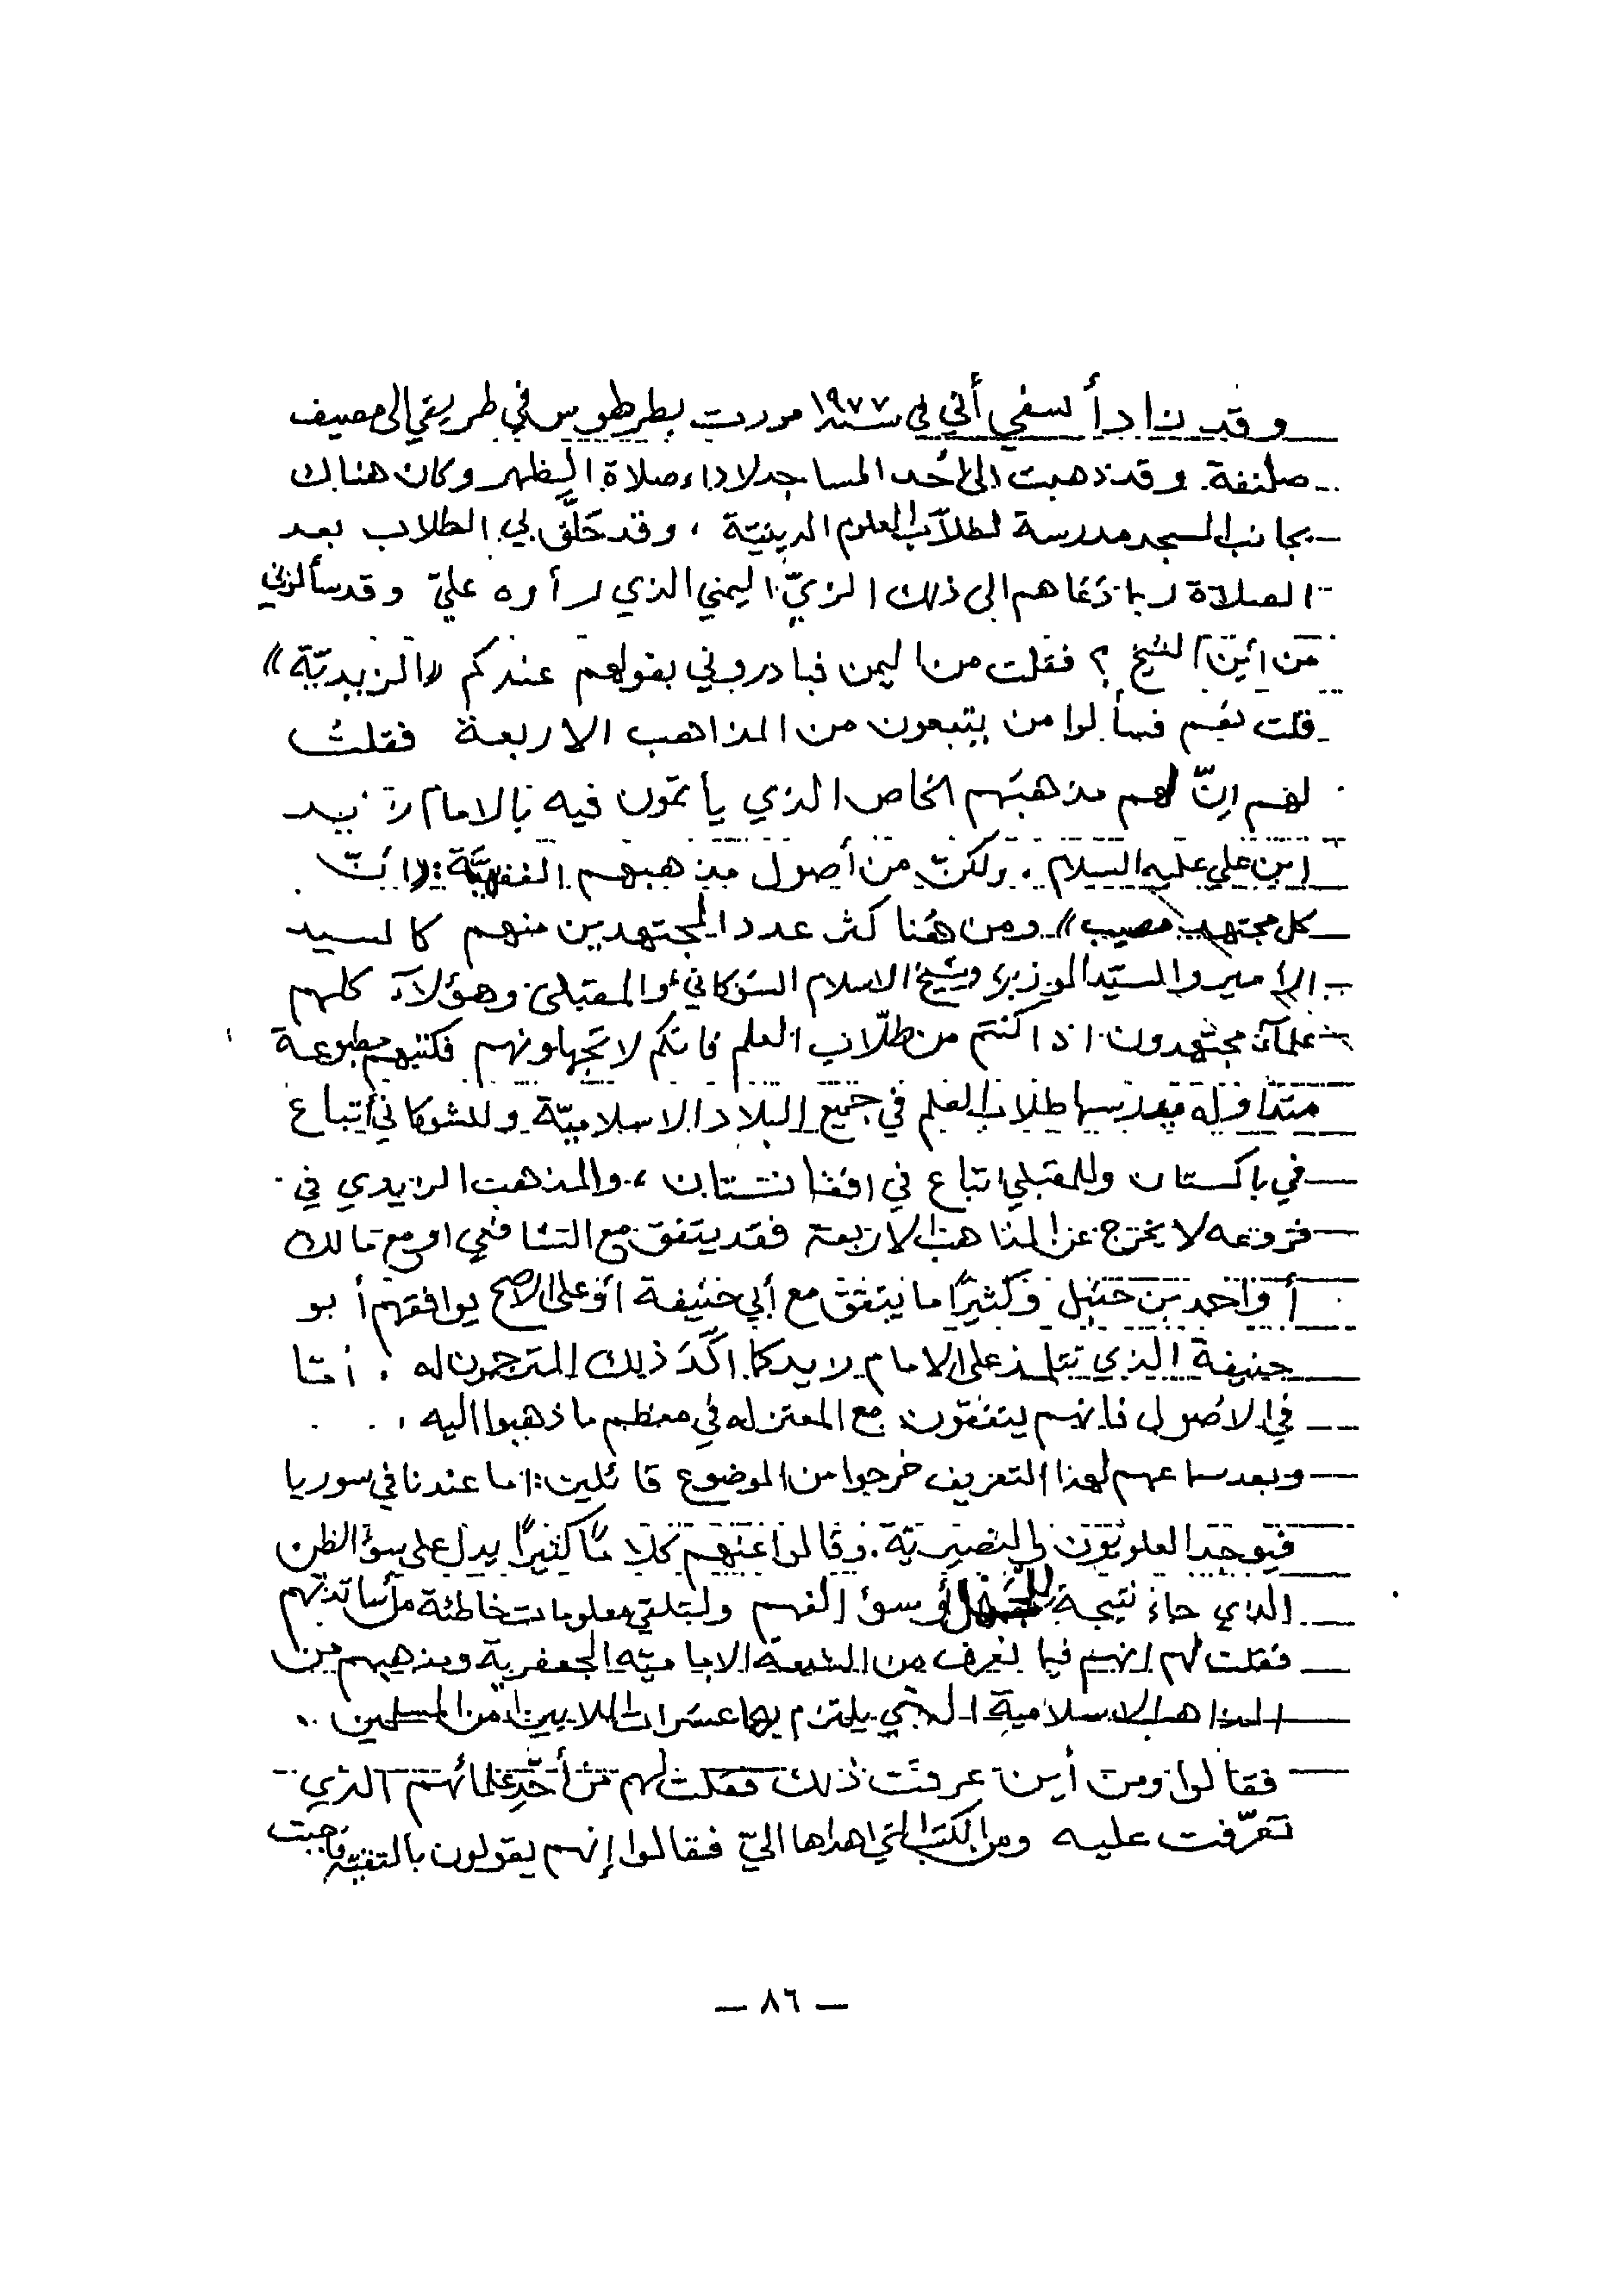 وقد زاد أسفي أني في سنة ١٩٧٧ مررت بطرطوس في طريقي الى مصيف
صلنفة. وقد ذهبت الى أحد المساجد لاداء صلاة الظهر وكان هنالك
بجانب المسجد مدرسة لطلاب العلوم الدينيّة ، وقد حَلَّق بي الطلاب بعد
الصلاة ربما دَعَاهم الى ذلك الزيّ اليمني الذي رأوه عليّ وقد سألوني
من أين الشيخ ؟ فقلت من اليمن فبادروني بقولهم عندكم «الزيديّة»
قلت نعم فسألوا من يتبعون من المذاهب الاربعة فقلت
لهم إنّ لهم مذهبهم الخاص الذي يأتمّون فيه بالامام زيد
ابن علي عليه السلام . ولكنّ من أصول مذهبهم الفقهيَّة : «أنّ
كل مجتهد مصيب» ومن هُنا كثر عدد المجتهدين منهم كالسيد
الأمير والسيّد الوزير وشيخ الاسلام الشوكاني والمقبلي وهؤلآء كلهم
علمآء مجتهدون اذا كنتم من طلّاب العلم فانكم لا تجهلونهم فكتبهم مطبوعة
متداوله يدرسها طلاب العلم في جميع البلاد الاسلاميّة وللشوكاني أتباع
في باكستان وللمقبلي اتباع في افغانستان ، والمذهب الزيدي في
فروعه لا يخرج عن المذاهب الاربعة فقد يتفق مع الشافعي او مع مالك
أو احمد بن حنبل وكثيرًا ما يتفق مع أبي حنيفة أو على الاصح يوافقهم أبو
حنيفة الذي تتلمذ على الامام زيد كما اكّدَ ذلك المترجمون له . أمّا
في الاصُول فانهم يتفقون مع المعتزله في معظم ما ذهبوا اليه .
وبعد سماعهم لهذا التعريف خرجوا من الموضوع قائلين : اما عندنا في سوريا
فيوجد العلويون والنصيريّة . وقالوا عنهم كلامًا كثيرًا يدل على سؤ الظن
الذي جاء نتيجة للجهل أو سؤ الفهم ولتلقي معلومات خاطئة من أساتذتهم
فقلت لهم إنهم فيما نعرف من الشيعة الاماميّه الجعفرية ومذهبهم من
المذاهب الاسلامية التي يلتزم بها عشرات الملايين من المسلمين .
فقالوا ومن أين عرفت ذلك فقلت لهم من أحد علمائهم الذي
تعرّفت عليه ومن الكتب التي اهداها اليّ فقالوا إنهم يقولون بالتقيّه فأجبت
— ٨٦ —